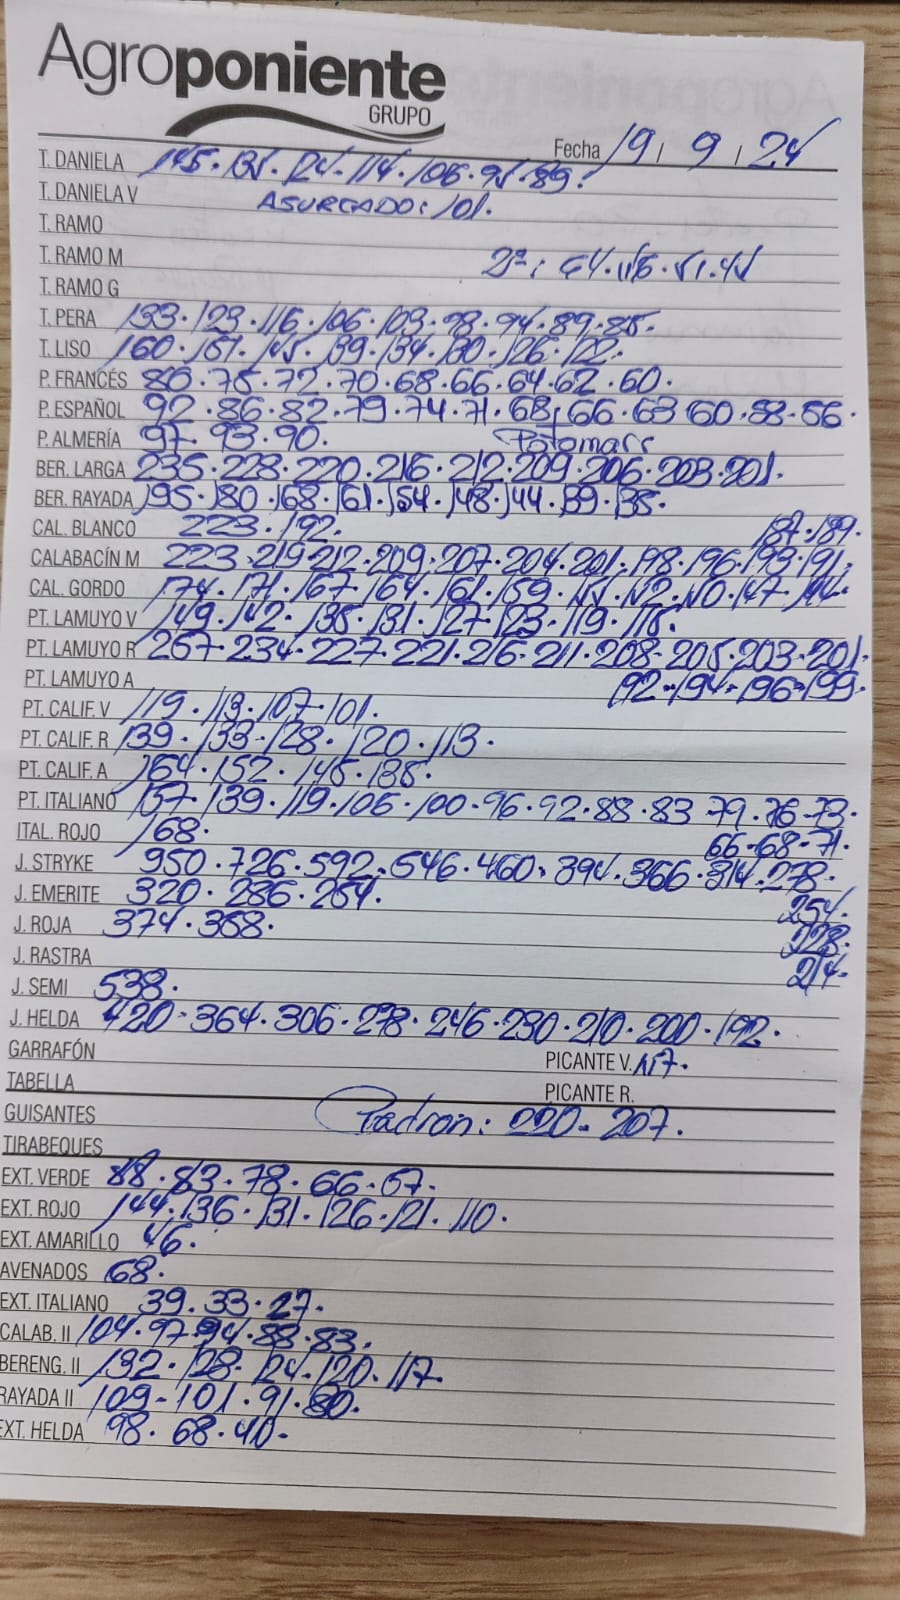 Agroponiente
GRUPO
Fecha 19 / 9 / 24
T. DANIELA 145. 135. 124. 114. 106. 95. 89.
T. DANIELA V ASURCADO: 101.
T. RAMO
T. RAMO M 2ª:
T. RAMO G
T. PERA 133. 123. 116. 106. 103. 98. 94. 89. 85.
T. LISO 160. 151. 145. 139. 134. 130. 126. 122.
P. FRANCÉS 80. 75. 72. 70. 68. 66. 64. 62. 60.
P. ESPAÑOL 92. 86. 82. 79. 74. 71. 68. 66. 63. 60. 58. 56.
P. ALMERÍA 97. 93. 90.
BER. LARGA 235. 228. 220. 216. 212. 209. 206. 203. 201.
BER. RAYADA 195. 180. 168. 161. 154. 148. 144. 139. 135.
CAL. BLANCO 223. 192. 187. 189.
CALABACÍN M 223. 219. 212. 209. 207. 204. 201. 198. 196. 193. 191.
CAL. GORDO 174. 171. 167. 164. 161. 159. 155. 152. 150. 147. 144.
PT. LAMUYO V 149. 142. 135. 131. 127. 123. 119. 115.
PT. LAMUYO R 257. 234. 227. 221. 216. 211. 208. 205. 203. 201.
PT. LAMUYO A 192. 194. 196. 199.
PT. CALIF. V 119. 113. 107. 101.
PT. CALIF. R 139. 133. 128. 120. 113.
PT. CALIF. A 164. 152. 145. 135.
PT. ITALIANO 157. 139. 119. 106. 100. 96. 92. 88. 83. 79. 76. 73.
ITAL. ROJO 168. 66. 68. 71.
J. STRYKE 950. 726. 592. 546. 460. 394. 366. 314. 278.
J. EMERITE 320. 286. 254. 254.
J. ROJA 374. 358. 228.
J. RASTRA 214.
J. SEMI 538.
J. HELDA 420. 364. 306. 278. 246. 230. 210. 200. 192.
GARRAFÓN PICANTE V. 157.
TABELLA PICANTE R.
GUISANTES Padron: 220. 207.
TIRABEQUES
EXT. VERDE 88. 83. 78. 66. 57.
EXT. ROJO 144. 136. 131. 126. 121. 110.
EXT. AMARILLO 46.
AVENADOS 68.
EXT. ITALIANO 39. 33. 27.
CALAB. II 104. 97. 94. 88. 83.
BERENG. II 132. 128. 124. 120. 117.
RAYADA II 109. 101. 91. 80.
EXT. HELDA 98. 68. 40.